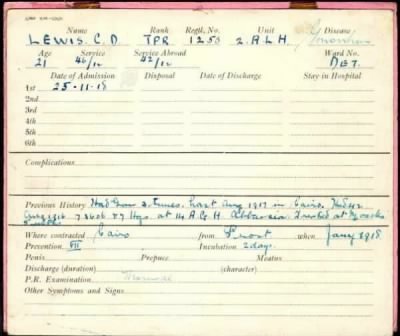 Name Rank Regtl. No. Unit Disease
LEWIS. C. D. TPR 1250 2. A. L. H.
Age Service Service Abroad Ward No.
21 46/12 42/12 DET.
Date of Admission Disposal Date of Discharge Stay in Hospital
1st 25-11-18
2nd
3rd
4th
5th
6th
Complications
Previous History Had Gon 3 times. Last Aug 1917 in Cairo.
Aug 1916 at 14 A.G.H. Abbassia. Treated at
Where contracted Cairo from Prost when Jany 1918
Prevention Nil Incubation 2 days.
Penis Prepuce Meatus
Discharge (duration) (character)
P.R. Examination Normal
Other Symptoms and Signs